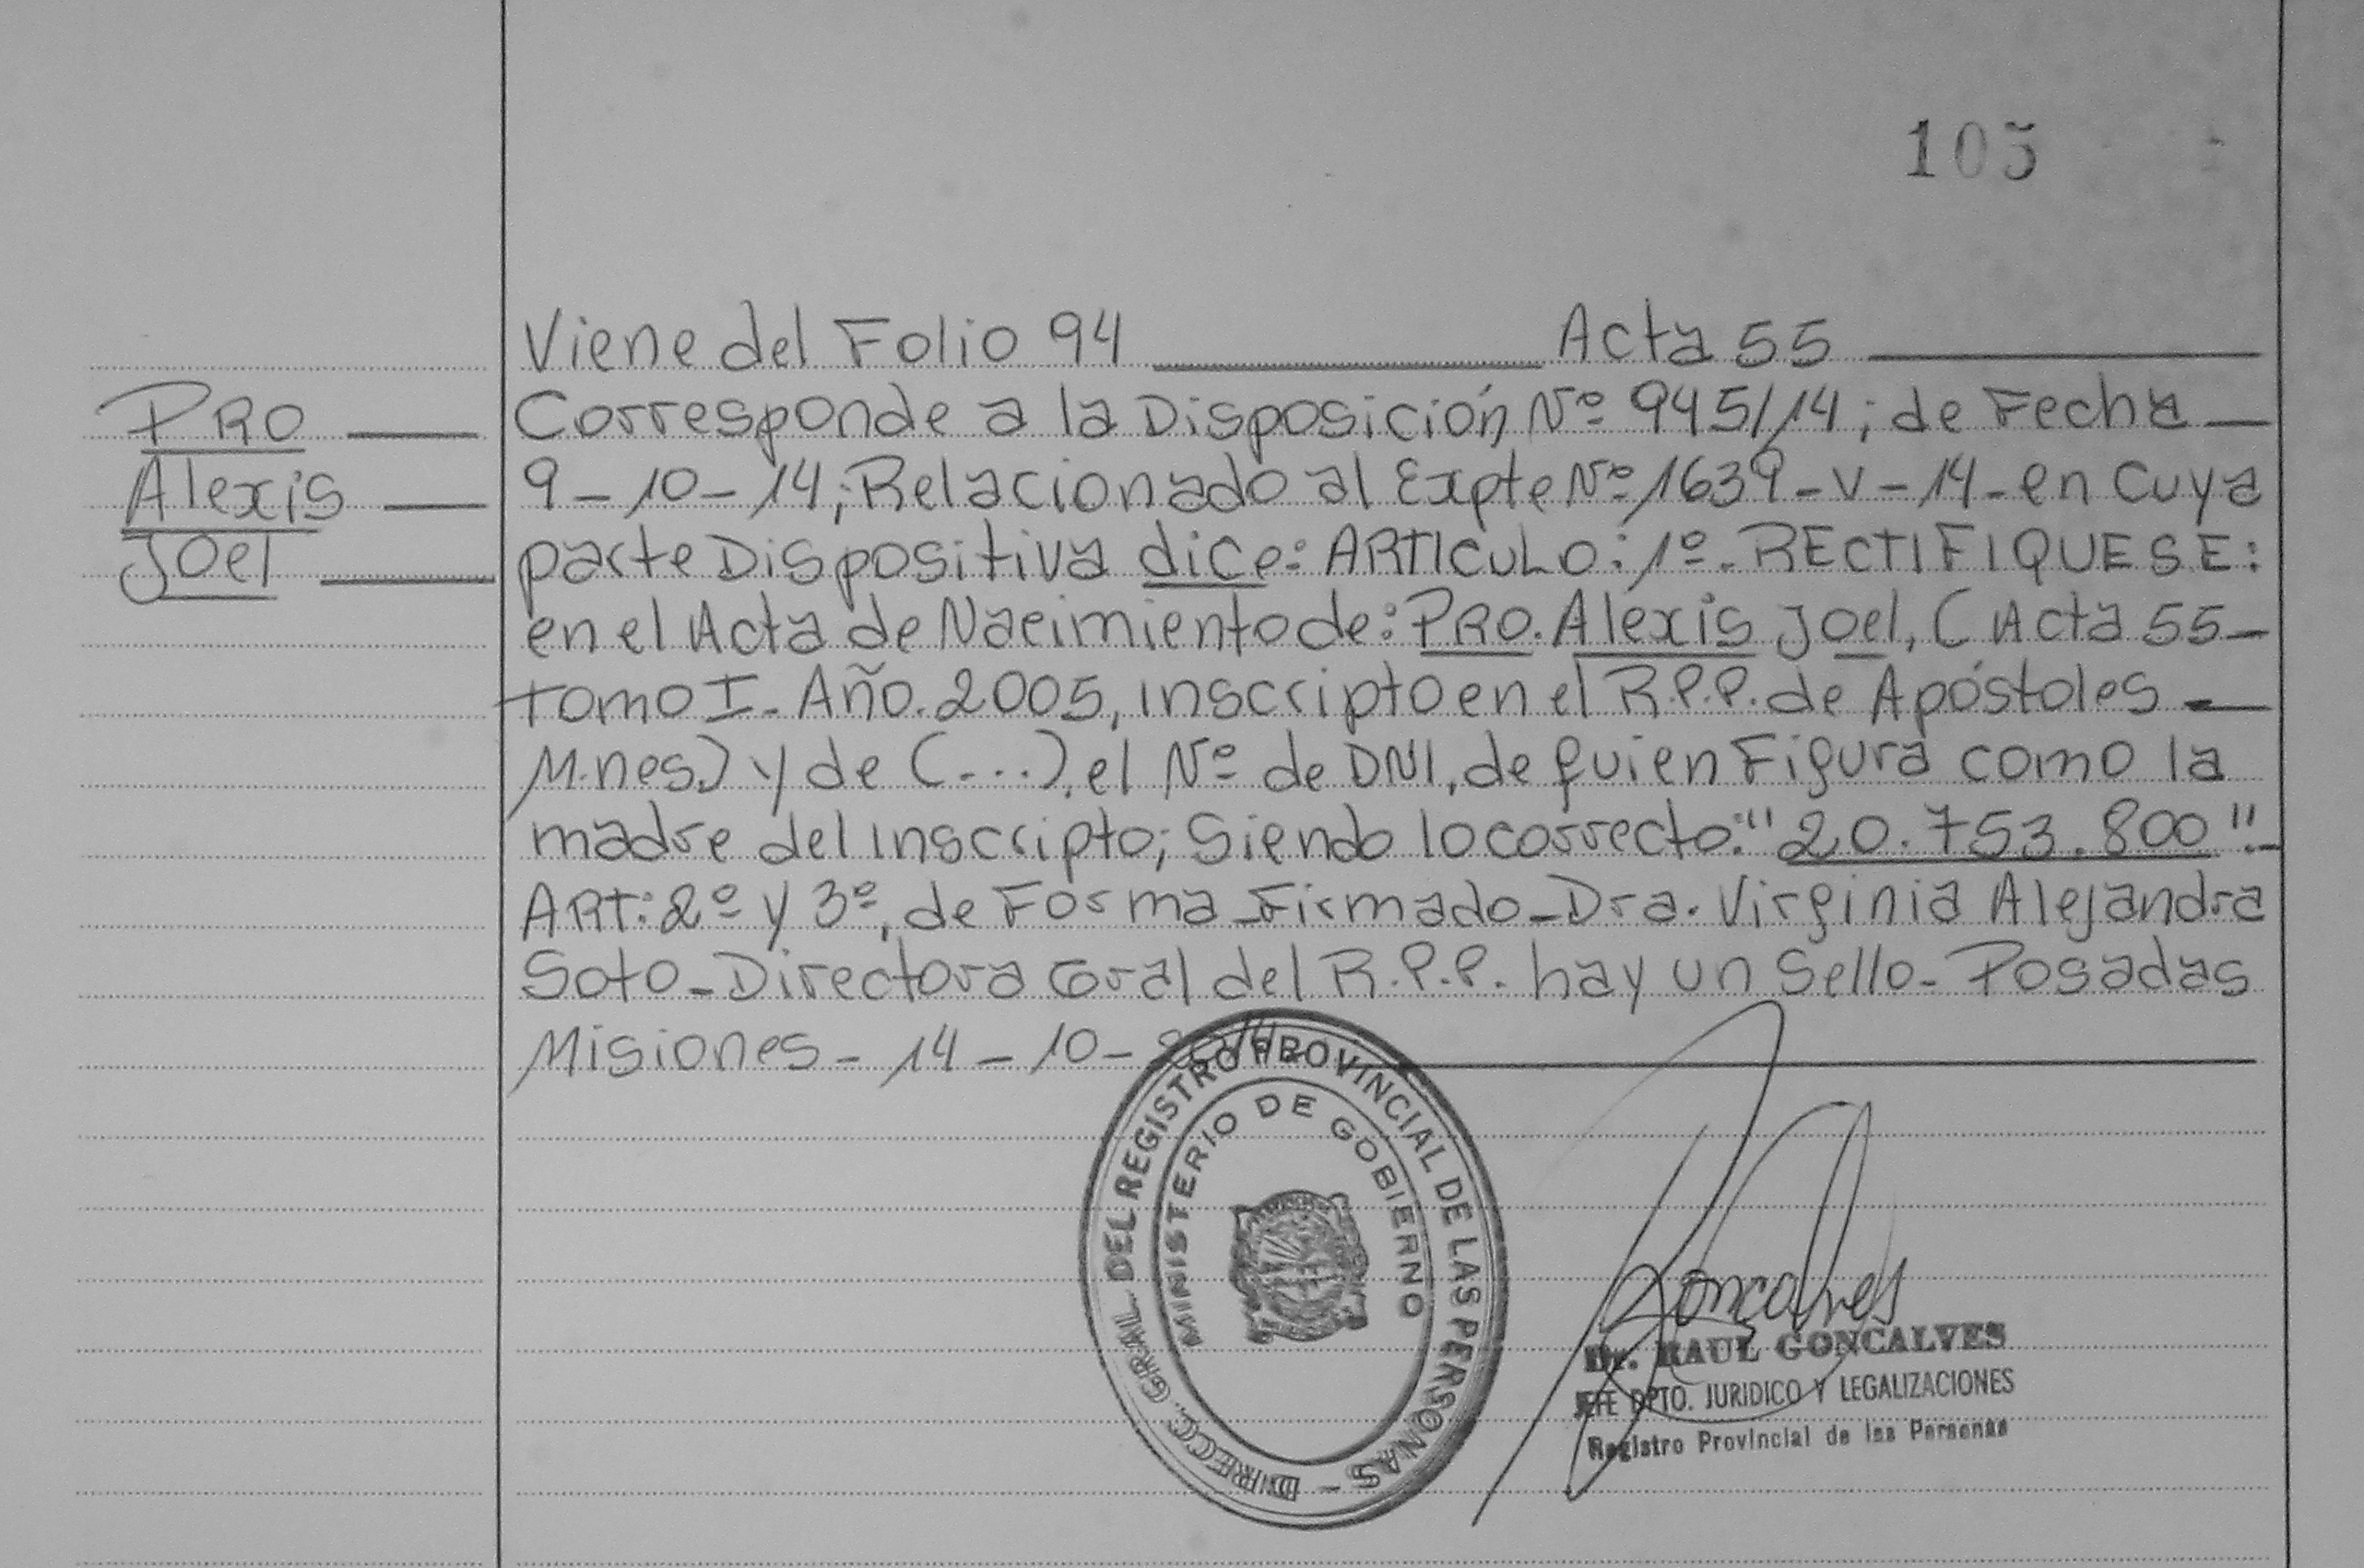 105
Viene del Folio 94 Acta 55
PRO
Alexis
Joel
Corresponde a la Disposición Nº 945/14; de Fecha
9-10-14; Relacionado al Expte Nº 1639-V-14-en cuya
parte Dispositiva dice: ARTICULO: 1º. RECTIFIQUESE:
en el Acta de Nacimiento de: PRO. Alexis Joel, (Acta 55-
Tomo I. Año. 2005, inscripto en el R.P.P. de Apóstoles
M.nes.) y de (...). el Nº de DNI, de quien Figura como la
madre del inscripto; Siendo lo correcto: "20.753.800".
ART: 2º y 3º, de Forma_Firmado_Dra. Virginia Alejandra
Soto_Directora Gral del R.P.P. hay un Sello- Posadas
Misiones - 14 - 10 - 2014
DIRECC. GRAL. DEL REGISTRO PROVINCIAL DE LAS PERSONAS -
MINISTERIO DE GOBIERNO
Goncalves
Dr. RAUL GONCALVES
JEFE DPTO. JURIDICO Y LEGALIZACIONES
Registro Provincial de las Personas